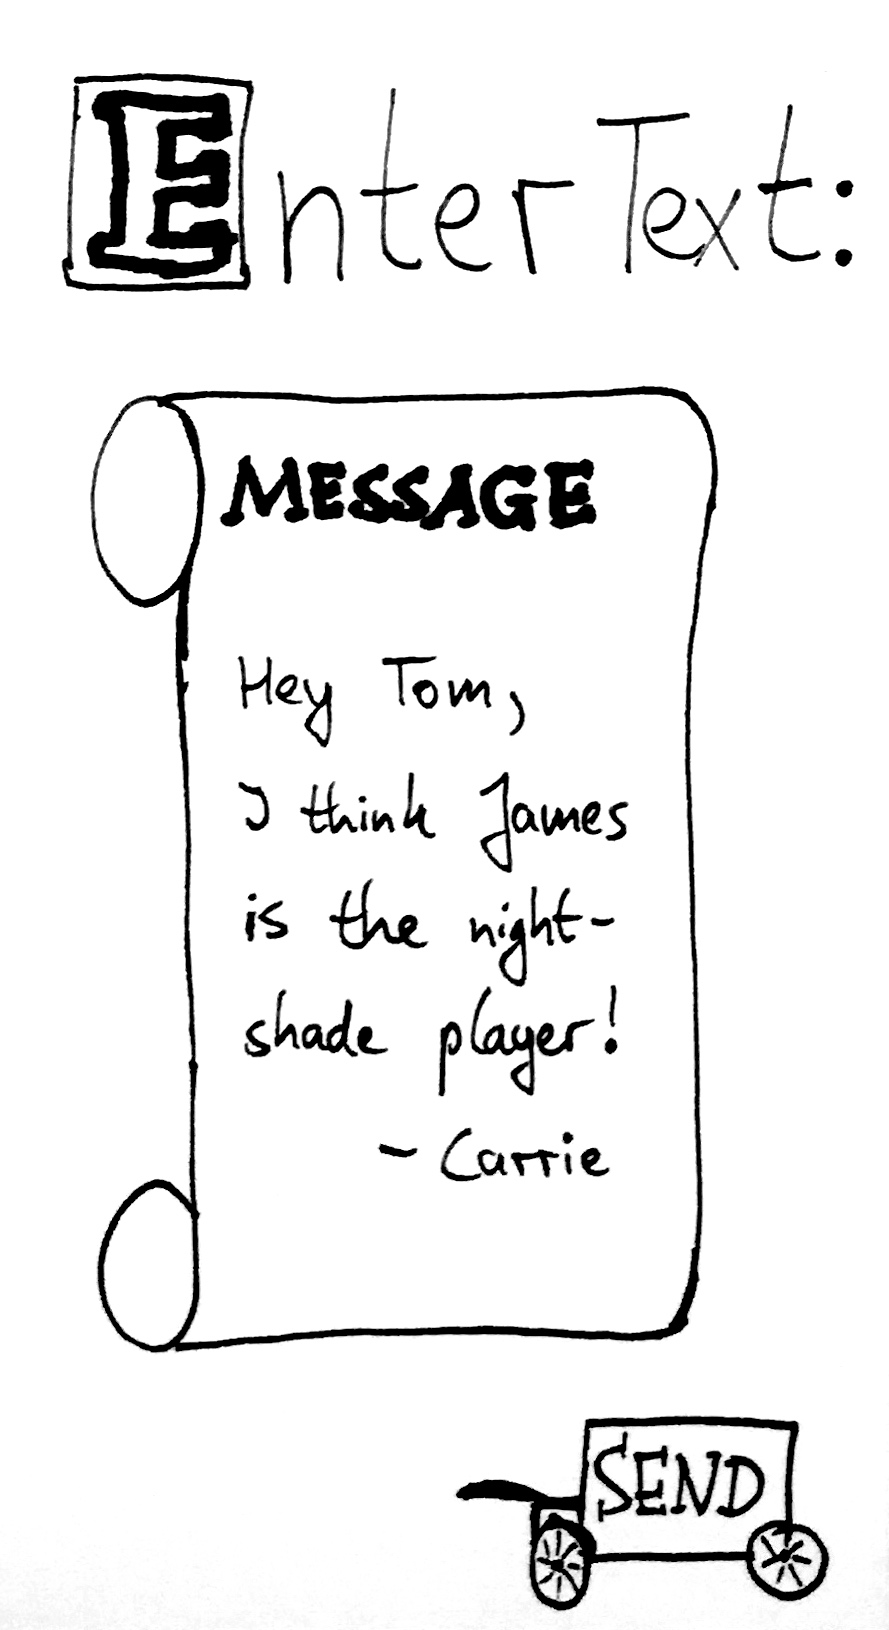 Enter Text:
MESSAGE
Hey Tom,
I think James
is the night-
shade player!
- Carrie
SEND